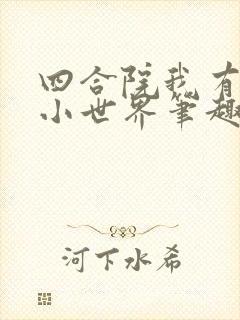 四合院我有
小世界笔趣
河下水希